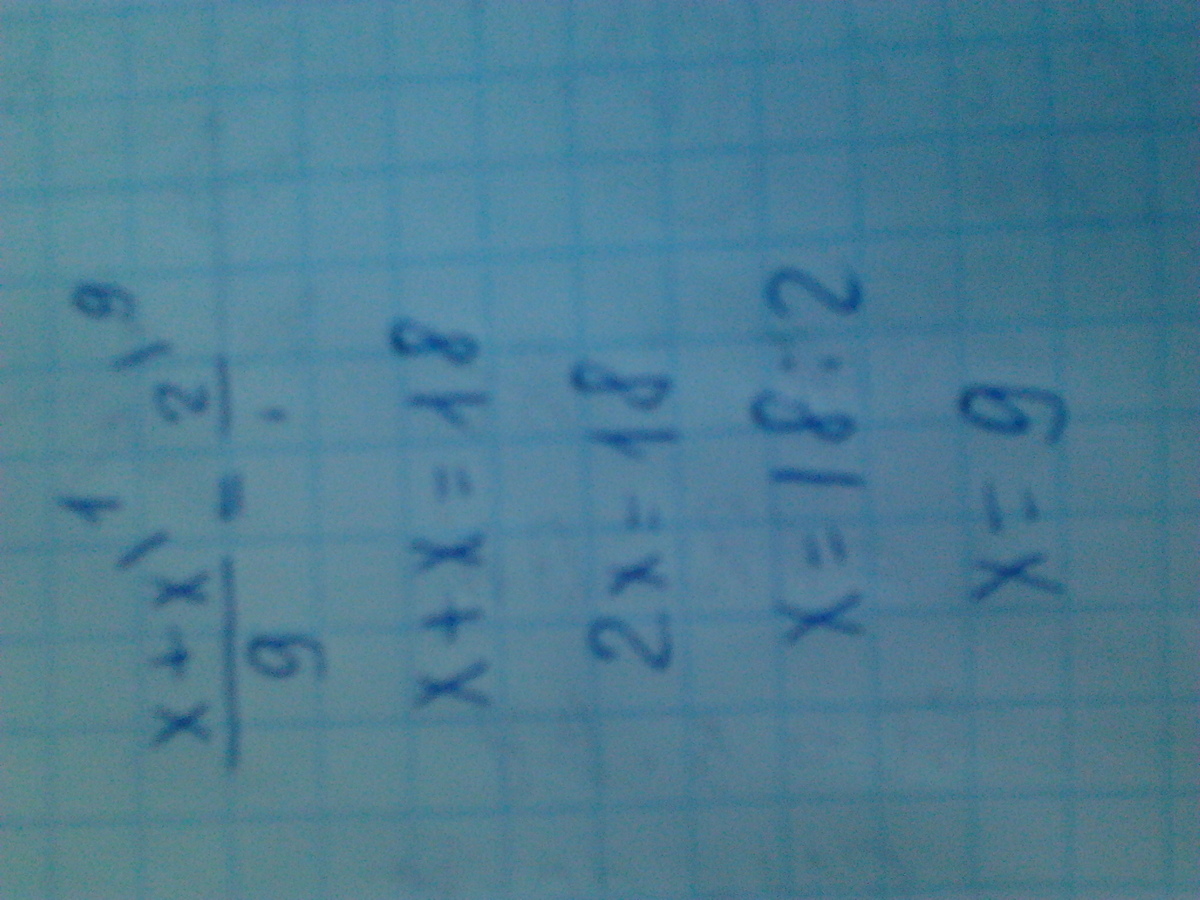 x+x\1 / 9 = 2\9 / .
x+x=18
2x=18
x=18:2
x=9